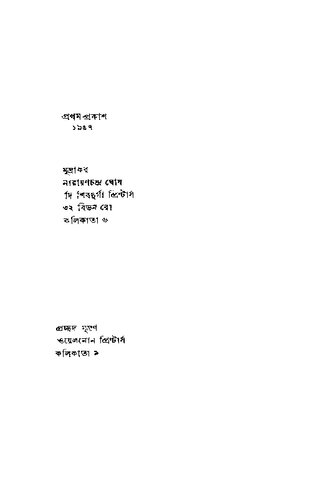 প্রথম প্রকাশ
১৯৪৭
মুদ্রাকর
নারায়ণচন্দ্র ঘোষ
দি শিবদুর্গা প্রিন্টার্স
৩২ বিডন রো
কলিকাতা ৬
প্রচ্ছদ মুদ্রণ
ওয়েলনোন প্রিন্টার্স
কলিকাতা ৯